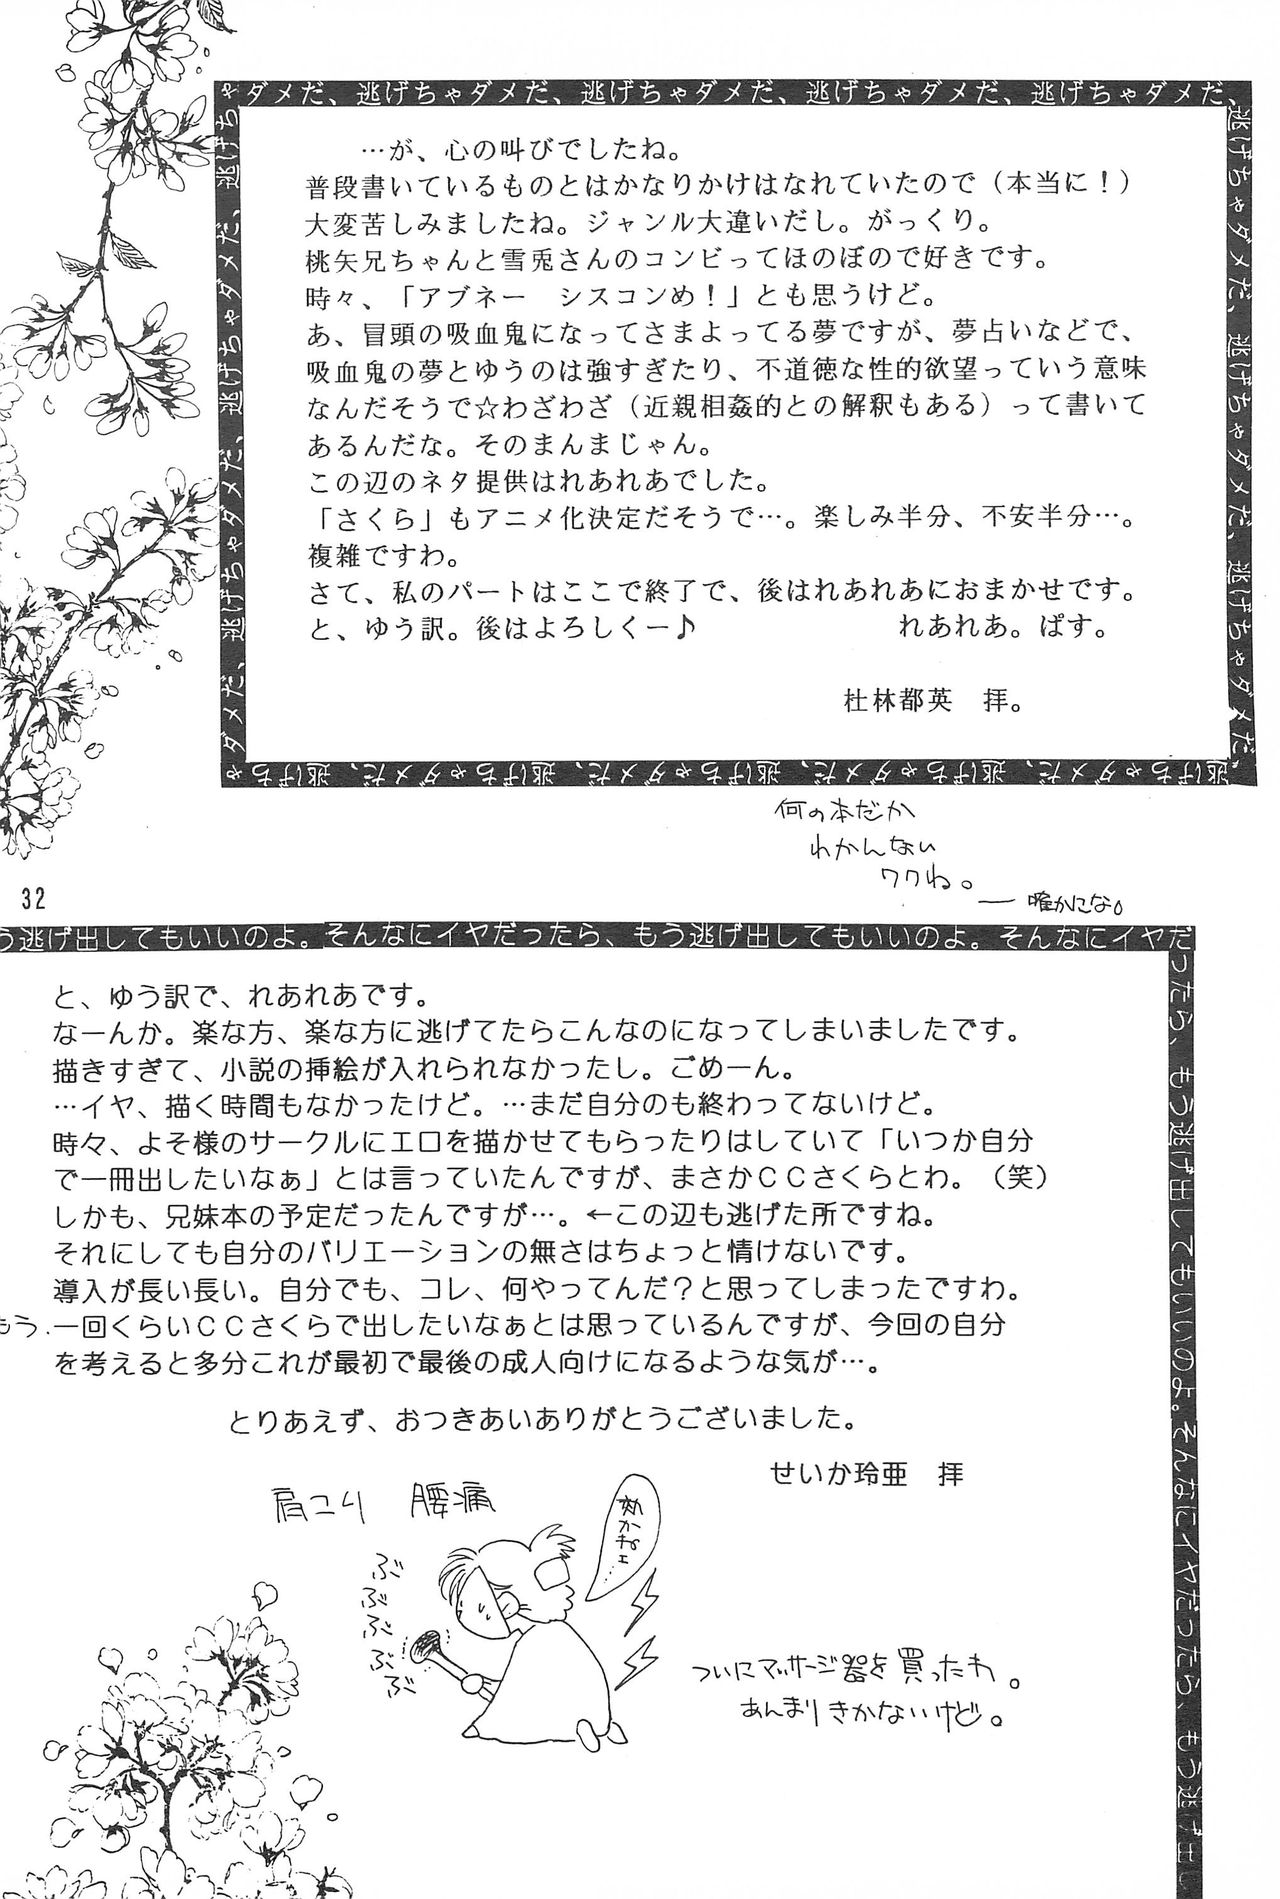 ゃダメだ、逃げちゃダメだ、逃げちゃダメだ、逃げちゃダメだ、逃げちゃダメだ、
…が、心の叫びでしたね。
普段書いているものとはかなりかけはなれていたので（本当に！）
大変苦しみましたね。ジャンル大違いだし。がっくり。
桃矢兄ちゃんと雪兎さんのコンビってほのぼので好きです。
時々、「アブネー　シスコンめ！」とも思うけど。
あ、冒頭の吸血鬼になってさまよってる夢ですが、夢占いなどで、
吸血鬼の夢とゆうのは強すぎたり、不道徳な性的欲望っていう意味
なんだそうで☆わざわざ（近親相姦的との解釈もある）って書いて
あるんだな。そのまんまじゃん。
この辺のネタ提供はれあれあでした。
「さくら」もアニメ化決定だそうで…。楽しみ半分、不安半分…。
複雑ですわ。
さて、私のパートはここで終了で、後はれあれあにおまかせです。
と、ゆう訳。後はよろしくー♪　れあれあ。ぱす。
杜林都英　拝。
逃げちゃダメだ、逃げちゃダメだ、逃げちゃダメだ、
逃げちゃダメだ、逃げちゃダメだ、逃げちゃダメだ、
ゃダメだ、逃げちゃダメだ、逃げちゃダメだ、逃げちゃダメだ、逃げち
何の本だか
わかんない
ワクね。
― 確かにな。
32
う逃げ出してもいいのよ。そんなにイヤだったら、もう逃げ出してもいいのよ。そんなにイヤだ
ったら、もう逃げ出してもいいのよ。そんなにイヤだったら、もう逃げ出し
と、ゆう訳で、れあれあです。
なーんか。楽な方、楽な方に逃げてたらこんなのになってしまいましたです。
描きすぎて、小説の挿絵が入れられなかったし。ごめーん。
…イヤ、描く時間もなかったけど。…まだ自分のも終わってないけど。
時々、よそ様のサークルにエロを描かせてもらったりはしていて「いつか自分
で一冊出したいなぁ」とは言っていたんですが、まさかＣＣさくらとわ。（笑）
しかも、兄妹本の予定だったんですが…。←この辺も逃げた所ですね。
それにしても自分のバリエーションの無さはちょっと情けないです。
導入が長い長い。自分でも、コレ、何やってんだ？と思ってしまったですわ。
もう、一回くらいＣＣさくらで出したいなぁとは思っているんですが、今回の自分
を考えると多分これが最初で最後の成人向けになるような気が…。
とりあえず、おつきあいありがとうございました。
せいか玲亜　拝
肩こり　腰痛
効かねェ…
ぶぶぶぶぶぶ
ついにマッサージ器を買ったわ。
あんまりきかないけど。